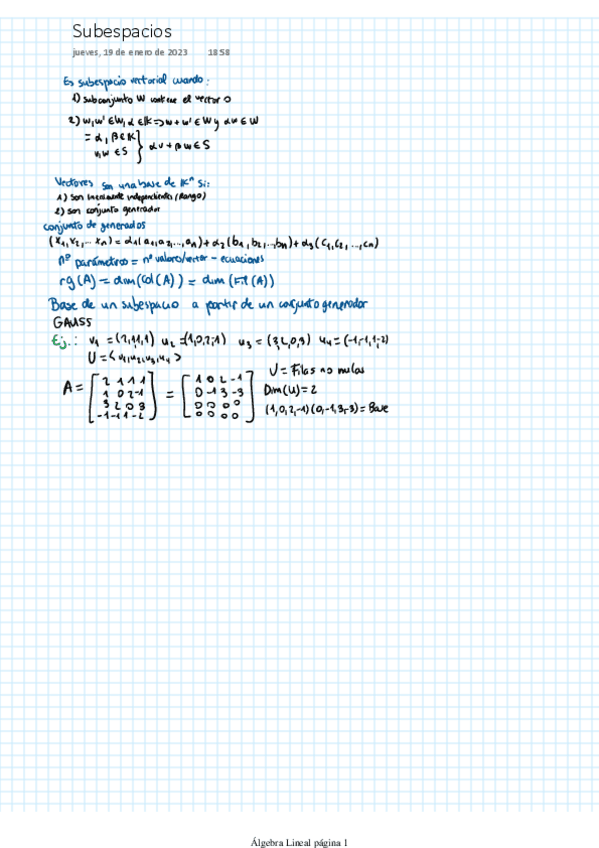 Subespacios
jueves, 19 de enero de 2023 18:58
Es subespacio vectorial cuando:
1) subconjunto W contiene el vector 0
2) w,w' ∈ W, α ∈ K => w + w' ∈ W y αw ∈ W
= α, β ∈ K
v, w ∈ S } αv + βw ∈ S
Vectores son una base de Kⁿ si:
1) son linealmente independientes (Rango)
2) son conjunto generador
conjunto de generados
(x₁, x₂, ... xₙ) = α₁(a₁, a₂, ..., aₙ) + α₂(b₁, b₂, .., bₙ) + α₃(c₁, c₂, ..., cₙ)
nº parámetros = nº valores/vector - ecuaciones
rg(A) = dim(Col(A)) = dim(Fil(A))
Base de un subespacio a partir de un conjunto generador
GAUSS
Ej.: v₁ = (2,1,1,1) u₂ = (1,0,2,-1) u₃ = (3,2,0,3) u₄ = (-1,-1,1,-2)
U = < u₁, u₂, u₃, u₄ >
U = Filas no nulas
A = [ 2 1 1 1 = [ 1 0 2 -1
1 0 2 -1 0 -1 3 -3 Dim(U) = 2
3 2 0 3 0 0 0 0 (1,0,2,-1) (0,-1,3,-3) = Base
-1 -1 1 -2 ] 0 0 0 0 ]
Álgebra Lineal página 1